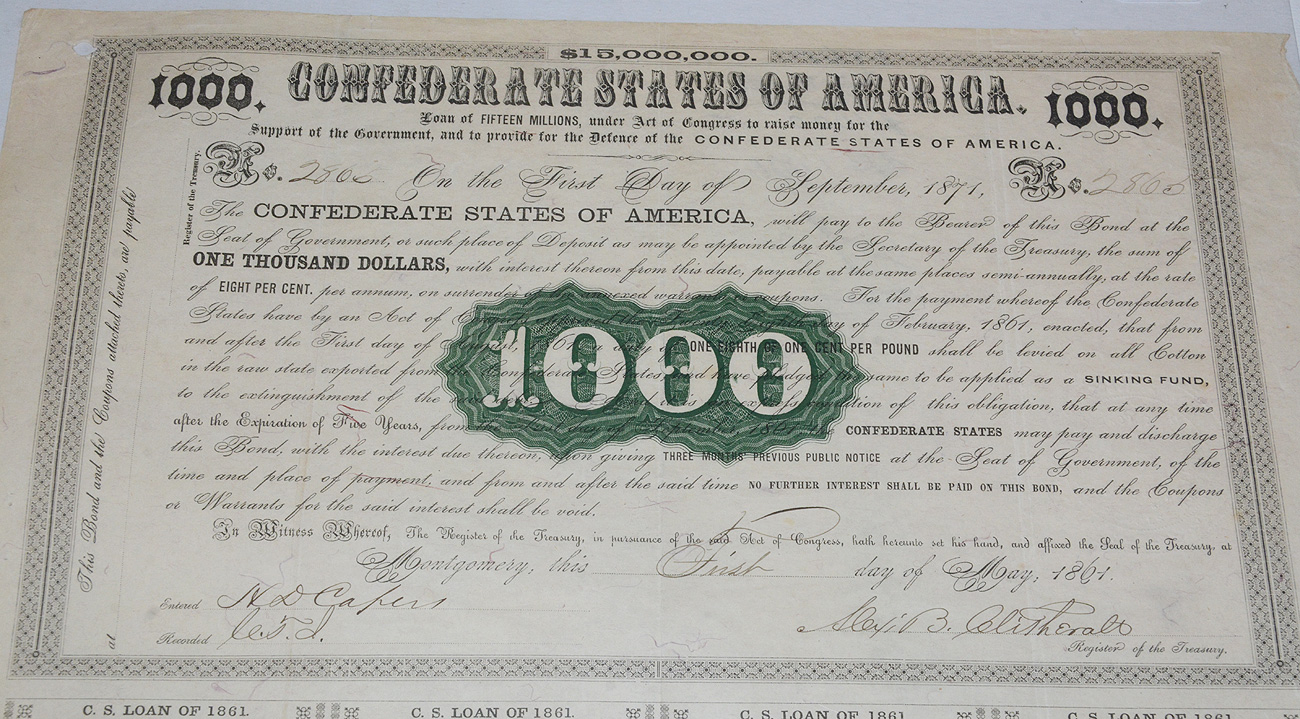 $15,000,000.
1000. CONFEDERATE STATES OF AMERICA. 1000.
Loan of FIFTEEN MILLIONS, under Act of Congress to raise money for the
Support of the Government, and to provide for the Defence of the CONFEDERATE STATES OF AMERICA.
No. On the First Day of September, 1871, No.
The CONFEDERATE STATES OF AMERICA, will pay to the Bearer of this Bond at the
Seat of Government, or such place of Deposit as may be appointed by the Secretary of the Treasury, the sum of
ONE THOUSAND DOLLARS, with interest thereon from this date, payable at the same places semi-annually, at the rate
of EIGHT PER CENT. per annum, on surrender of annexed warrants coupons. For the payment whereof the Confederate
States have by an Act of day of February, 1861, enacted, that from
and after the First day of ONE EIGHTH OF ONE CENT PER POUND shall be levied on all Cotton
in the raw state exported from the Confederate States same to be applied as a SINKING FUND,
to the extinguishment of the of this obligation, that at any time
after the Expiration of Five Years, from the First day of September, the CONFEDERATE STATES may pay and discharge
this Bond, with the interest due thereon, upon giving THREE MONTHS' PREVIOUS PUBLIC NOTICE at the Seat of Government, of the
time and place of payment, and from and after the said time NO FURTHER INTEREST SHALL BE PAID ON THIS BOND, and the Coupons
or Warrants for the said interest shall be void.
1000
In Witness Whereof, The Register of the Treasury, in pursuance of the said Act of Congress, hath hereunto set his hand, and affixed the Seal of the Treasury, at
Montgomery, this First day of May, 1861.
Entered H D Capers
Recorded
Alex. B. Clitherall
Register of the Treasury.
Register of the Treasury.
This Bond and the Coupons attached thereto, are payable
at
C. S. LOAN OF 1861. C. S. LOAN OF 1861. C. S. LOAN OF 1861. C. S. LOAN OF 1861.